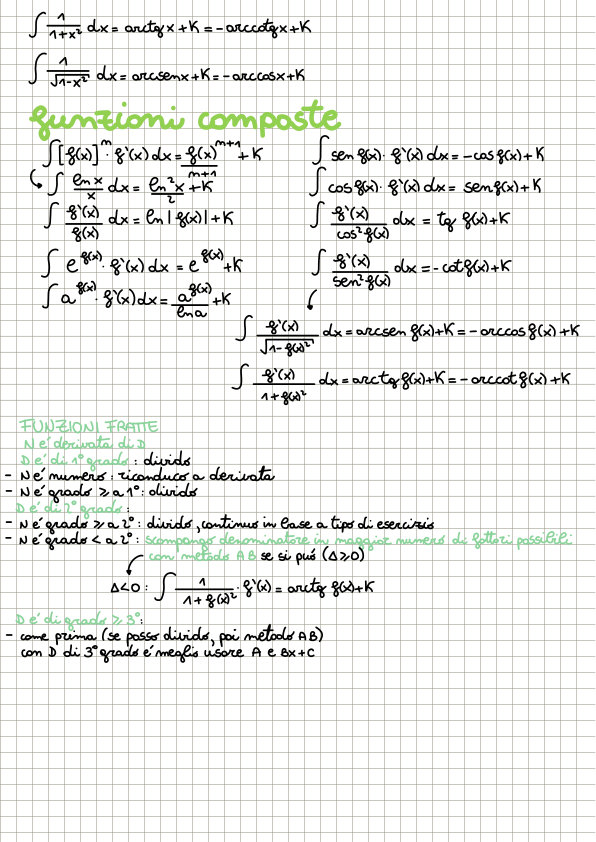 ∫ 1/(1+x²) dx = arctgx + K = -arccotgx + K
∫ 1/√(1-x²) dx = arcsenx + K = -arccosx + K
funzioni composte
∫ [f(x)]^n · f'(x) dx = f(x)^(n+1)/(n+1) + K
∫ lnx/x dx = ln²x/2 + K
∫ f'(x)/f(x) dx = ln|f(x)| + K
∫ e^f(x) · f'(x) dx = e^f(x) + K
∫ a^f(x) · f'(x) dx = a^f(x)/lna + K
∫ sen f(x) · f'(x) dx = -cos f(x) + K
∫ cos f(x) · f'(x) dx = sen f(x) + K
∫ f'(x)/cos² f(x) dx = tg f(x) + K
∫ f'(x)/sen² f(x) dx = -cot f(x) + K
∫ f'(x)/√(1-f(x)²) dx = arcsen f(x) + K = -arccos f(x) + K
∫ f'(x)/(1+f(x)²) dx = arctg f(x) + K = -arccot f(x) + K
FUNZIONI FRATTE
N é derivata di D
D é di 1° grado : divido
- N é numero : riconduco a derivata
- N é grado ≥ a 1° : divido
D é di 2° grado :
- N é grado ≥ a 2° : divido, continuo in base a tipo di esercizio
- N é grado < a 2° : scompongo denominatore in maggior numero di fattori possibili
con metodo AB se si può (Δ≥0)
Δ<0 : ∫ 1/(1+f(x)²) · f'(x) = arctg f(x) + K
D é di grado ≥ 3° :
- come prima (se posso divido, poi metodo AB)
con D di 3° grado é meglio usare A e Bx+C